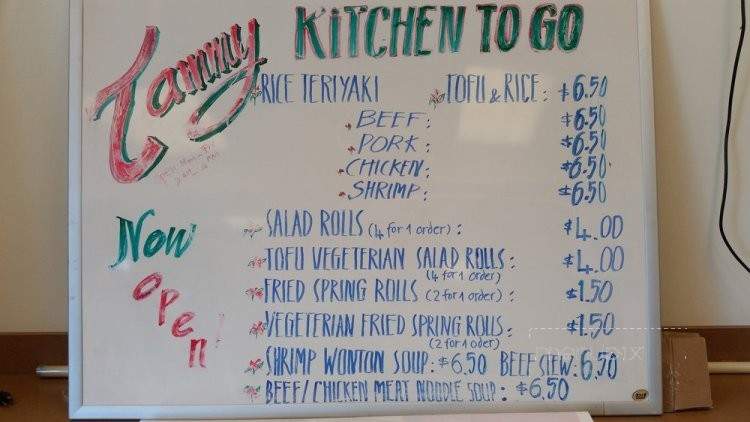 Tammy KITCHEN TO GO
RICE TERIYAKI TOFU & RICE: $6.50
BEEF: $6.50
PORK: $6.50
CHICKEN: $6.50
SHRIMP: $6.50
Now
Open!
SALAD ROLLS (4 for 1 order): $4.00
TOFU VEGETERIAN SALAD ROLLS: $4.00
(4 for 1 order)
FRIED SPRING ROLLS (2 for 1 order): $1.50
VEGETERIAN FRIED SPRING ROLLS: $1.50
(2 for 1 order)
SHRIMP WONTON SOUP: $6.50 BEEF STEW: 6.50
BEEF/CHICKEN MEAT NOODLE SOUP: $6.50